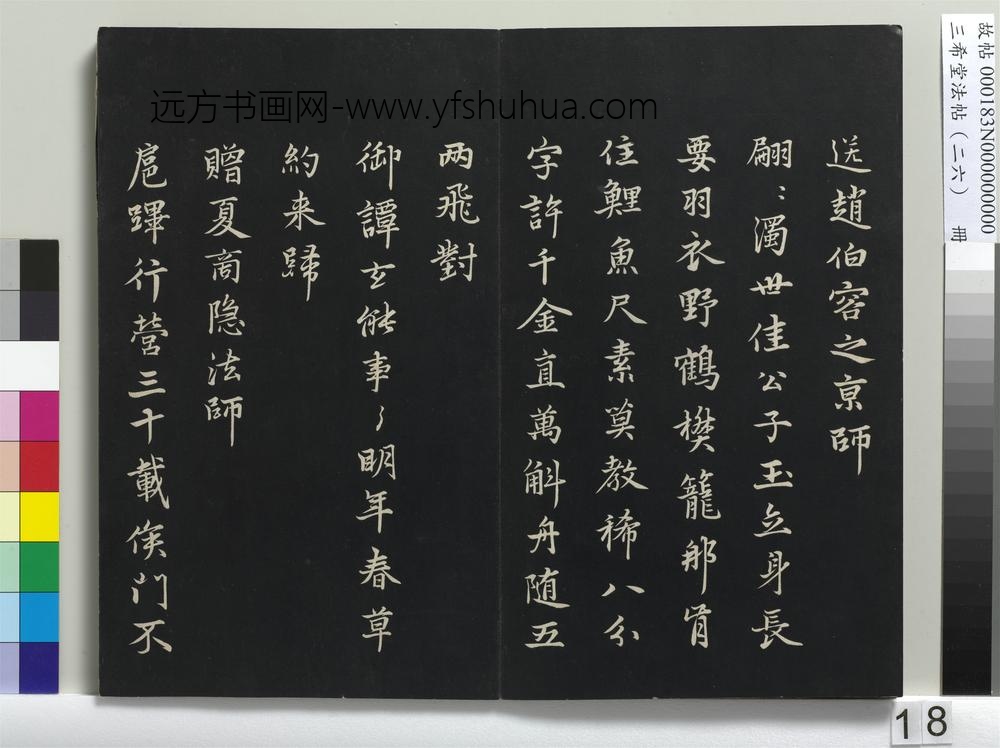 送趙伯容之京師
翩〻濁世佳公子玉立身長
要羽衣野鶴樊籠那肯
住鯉魚尺素莫教稀八分
字許千金直萬斛舟随五
两飛對
御譚玄能事〻明年春草
約来歸
贈夏商隐法師
扈蹕行營三十載侯門不
远方书画网-www.yfshuhua.com
故帖000183N000000000
三希堂法帖（二六） 冊
18